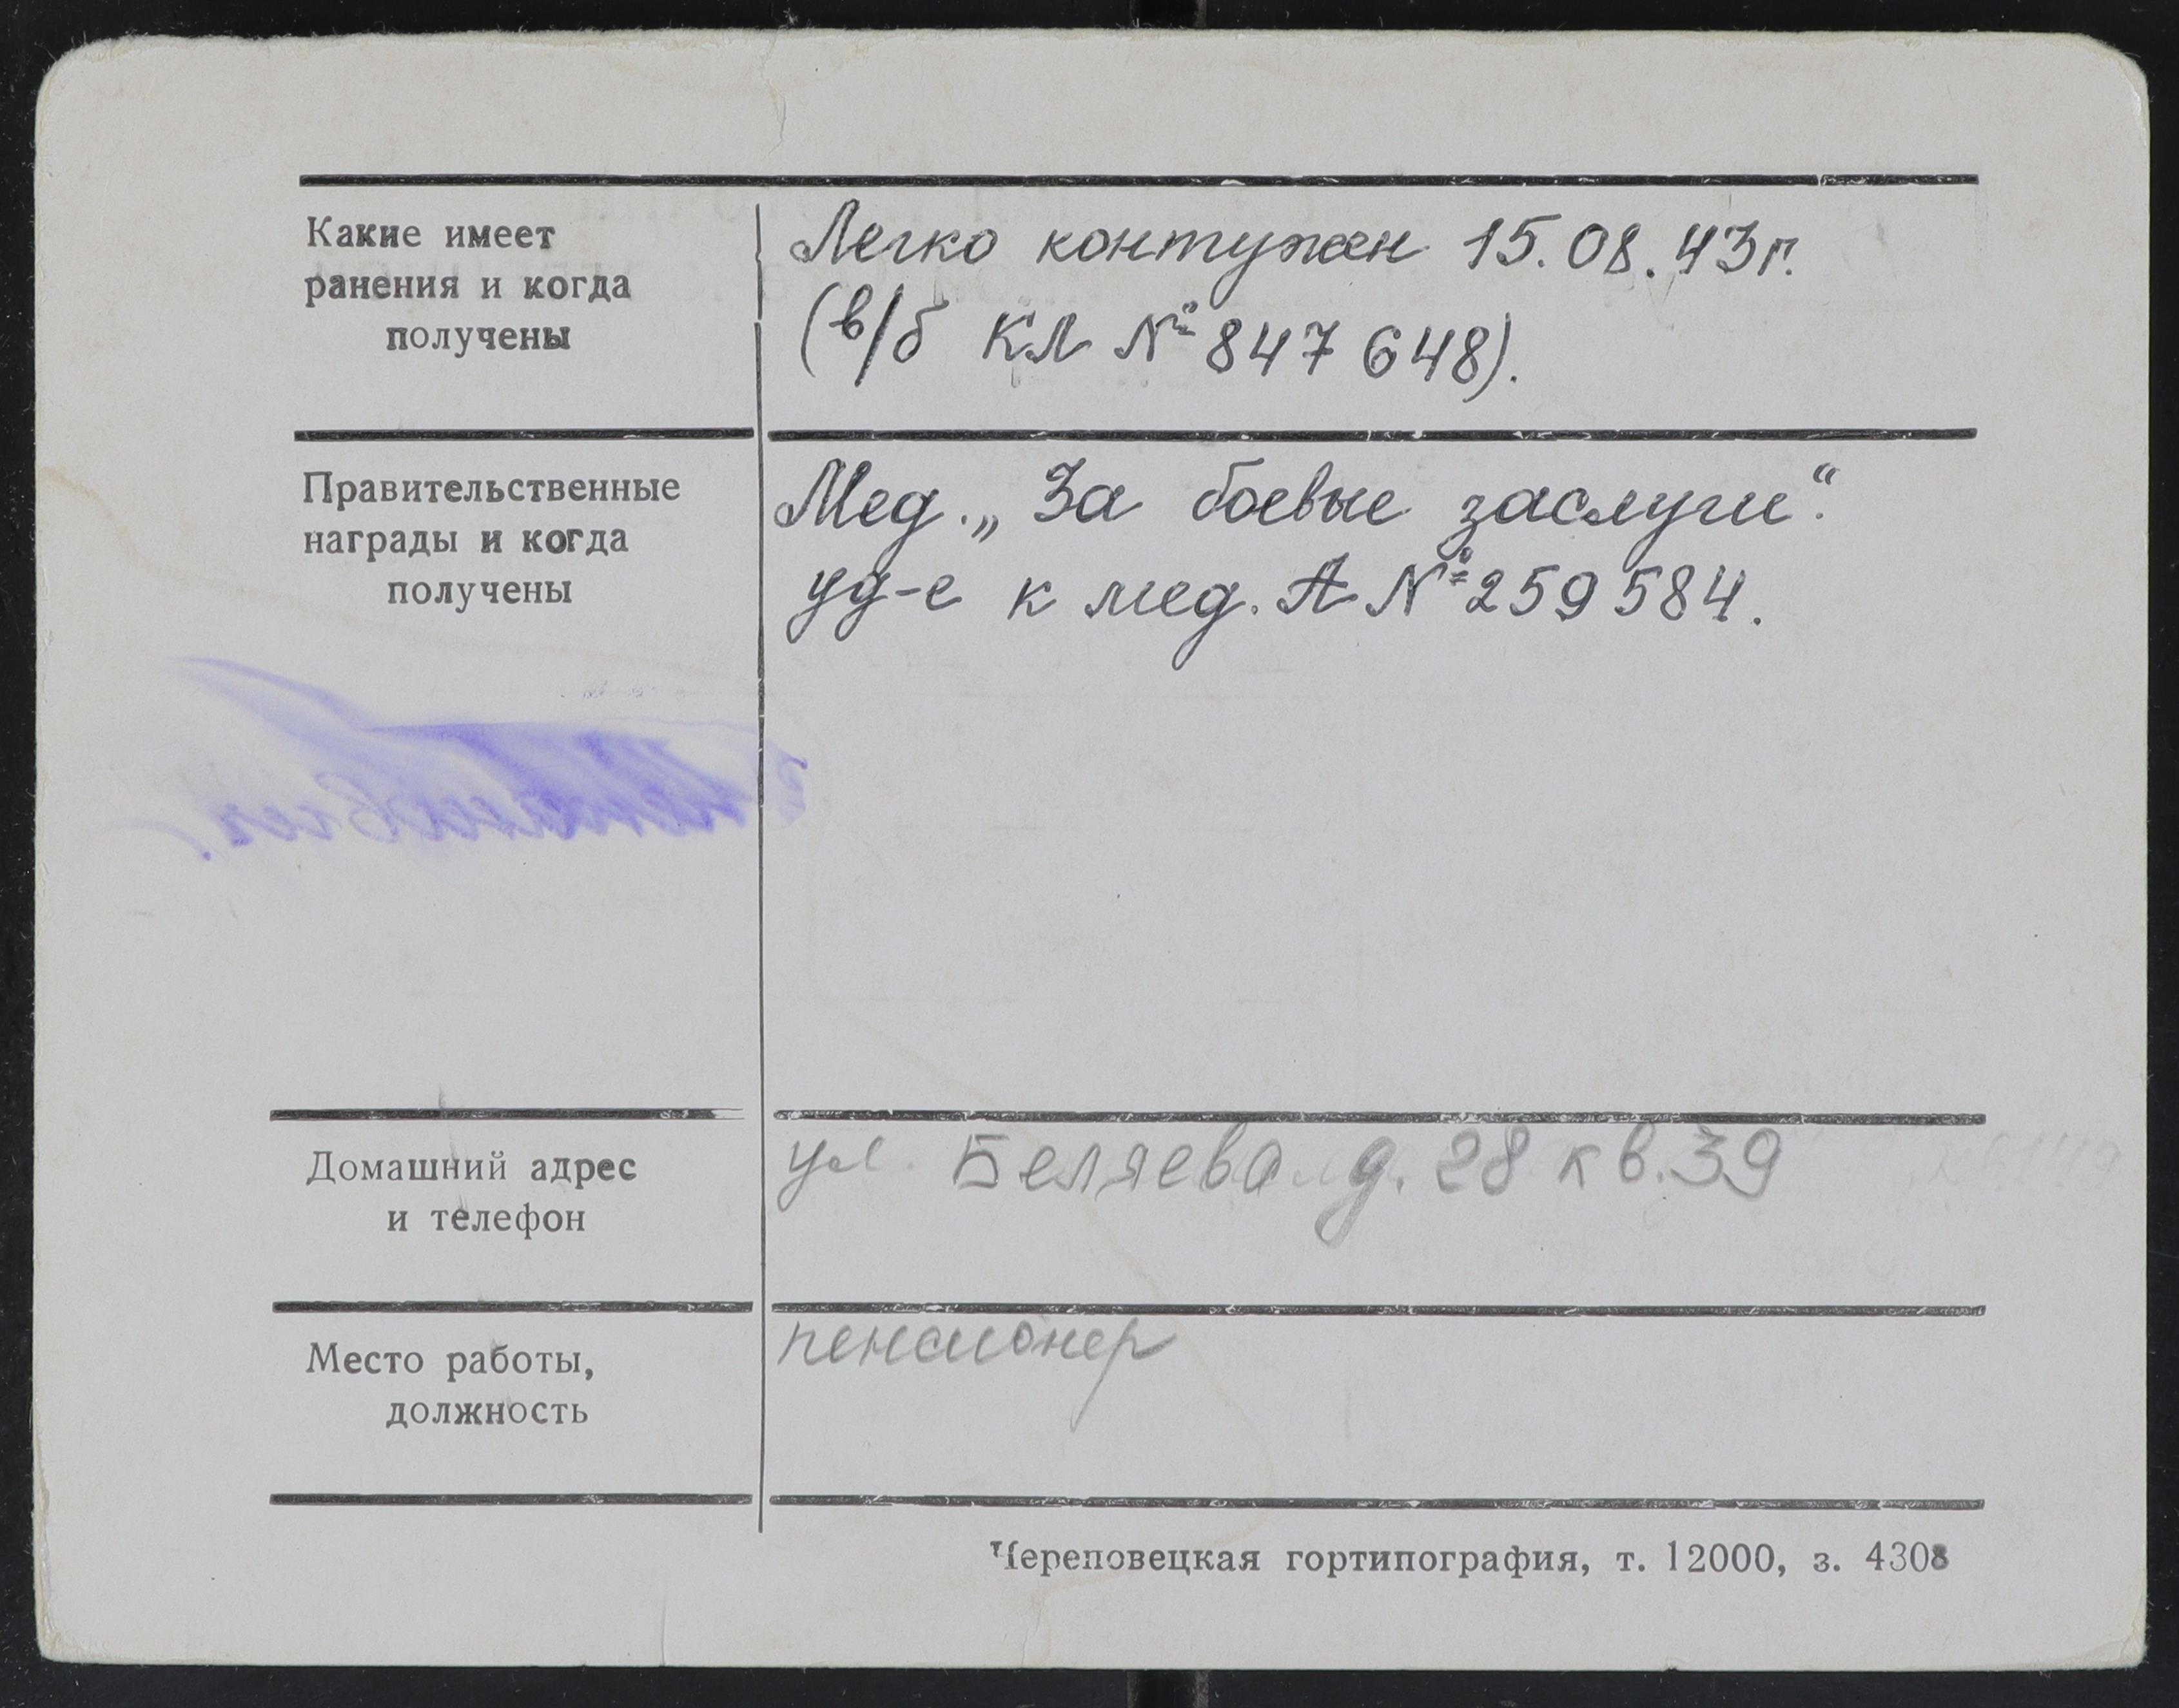 Какие имеет
ранения и когда
получены
Легко контужен 15.08.43г.
(в/б КЛ № 847 648).
Правительственные
награды и когда
получены
Мед. „За боевые заслуги“.
уд-е к мед. А № 259 584.
Домашний адрес
и телефон
ул. Беляева д. 28 кв. 39
Место работы,
должность
пенсионер
Череповецкая гортипография, т. 12000, з. 4308